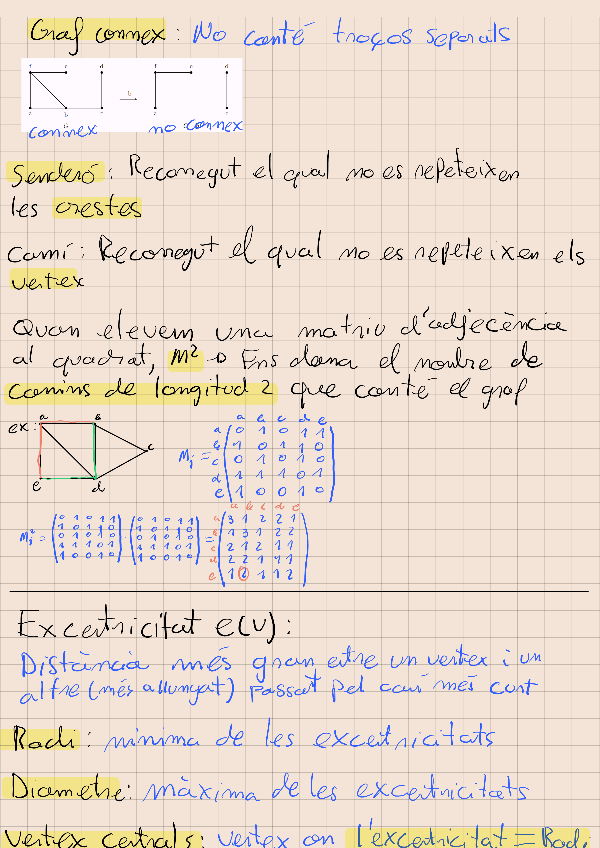 Graf connex: No conté troços separats
connex no connex
Senderó: Recorregut el qual no es repeteixen
les arestes
Camí: Recorregut el qual no es repeteixen els
vertex
Quan elevem una matriu d'adjecència
al quadrat, M² → Ens dona el nombre de
camins de longitud 2 que conté el graf
ex: a b c d e
a b c d e
a 0 1 0 1 1
b 1 0 1 1 0
Mj = c 0 1 0 1 0
d 1 1 1 0 1
e 1 0 0 1 0
a b c d e
0 1 0 1 1 0 1 0 1 1 a 3 1 2 2 1
1 0 1 1 0 1 0 1 1 0 b 1 3 1 2 2
Mj² = 0 1 0 1 0 · 0 1 0 1 0 = c 2 1 2 1 1
1 1 1 0 1 1 1 1 0 1 d 2 2 1 4 1
1 0 0 1 0 1 0 0 1 0 e 1 2 1 1 2
Excentricitat e(v):
Distància més gran entre un vertex i un
altre (més allunyat) passat pel camí més curt
Radi: mínima de les excentricitats
Diametre: màxima de les excentricitats
Vertex centrals: vertex on l'excentricitat = Radi